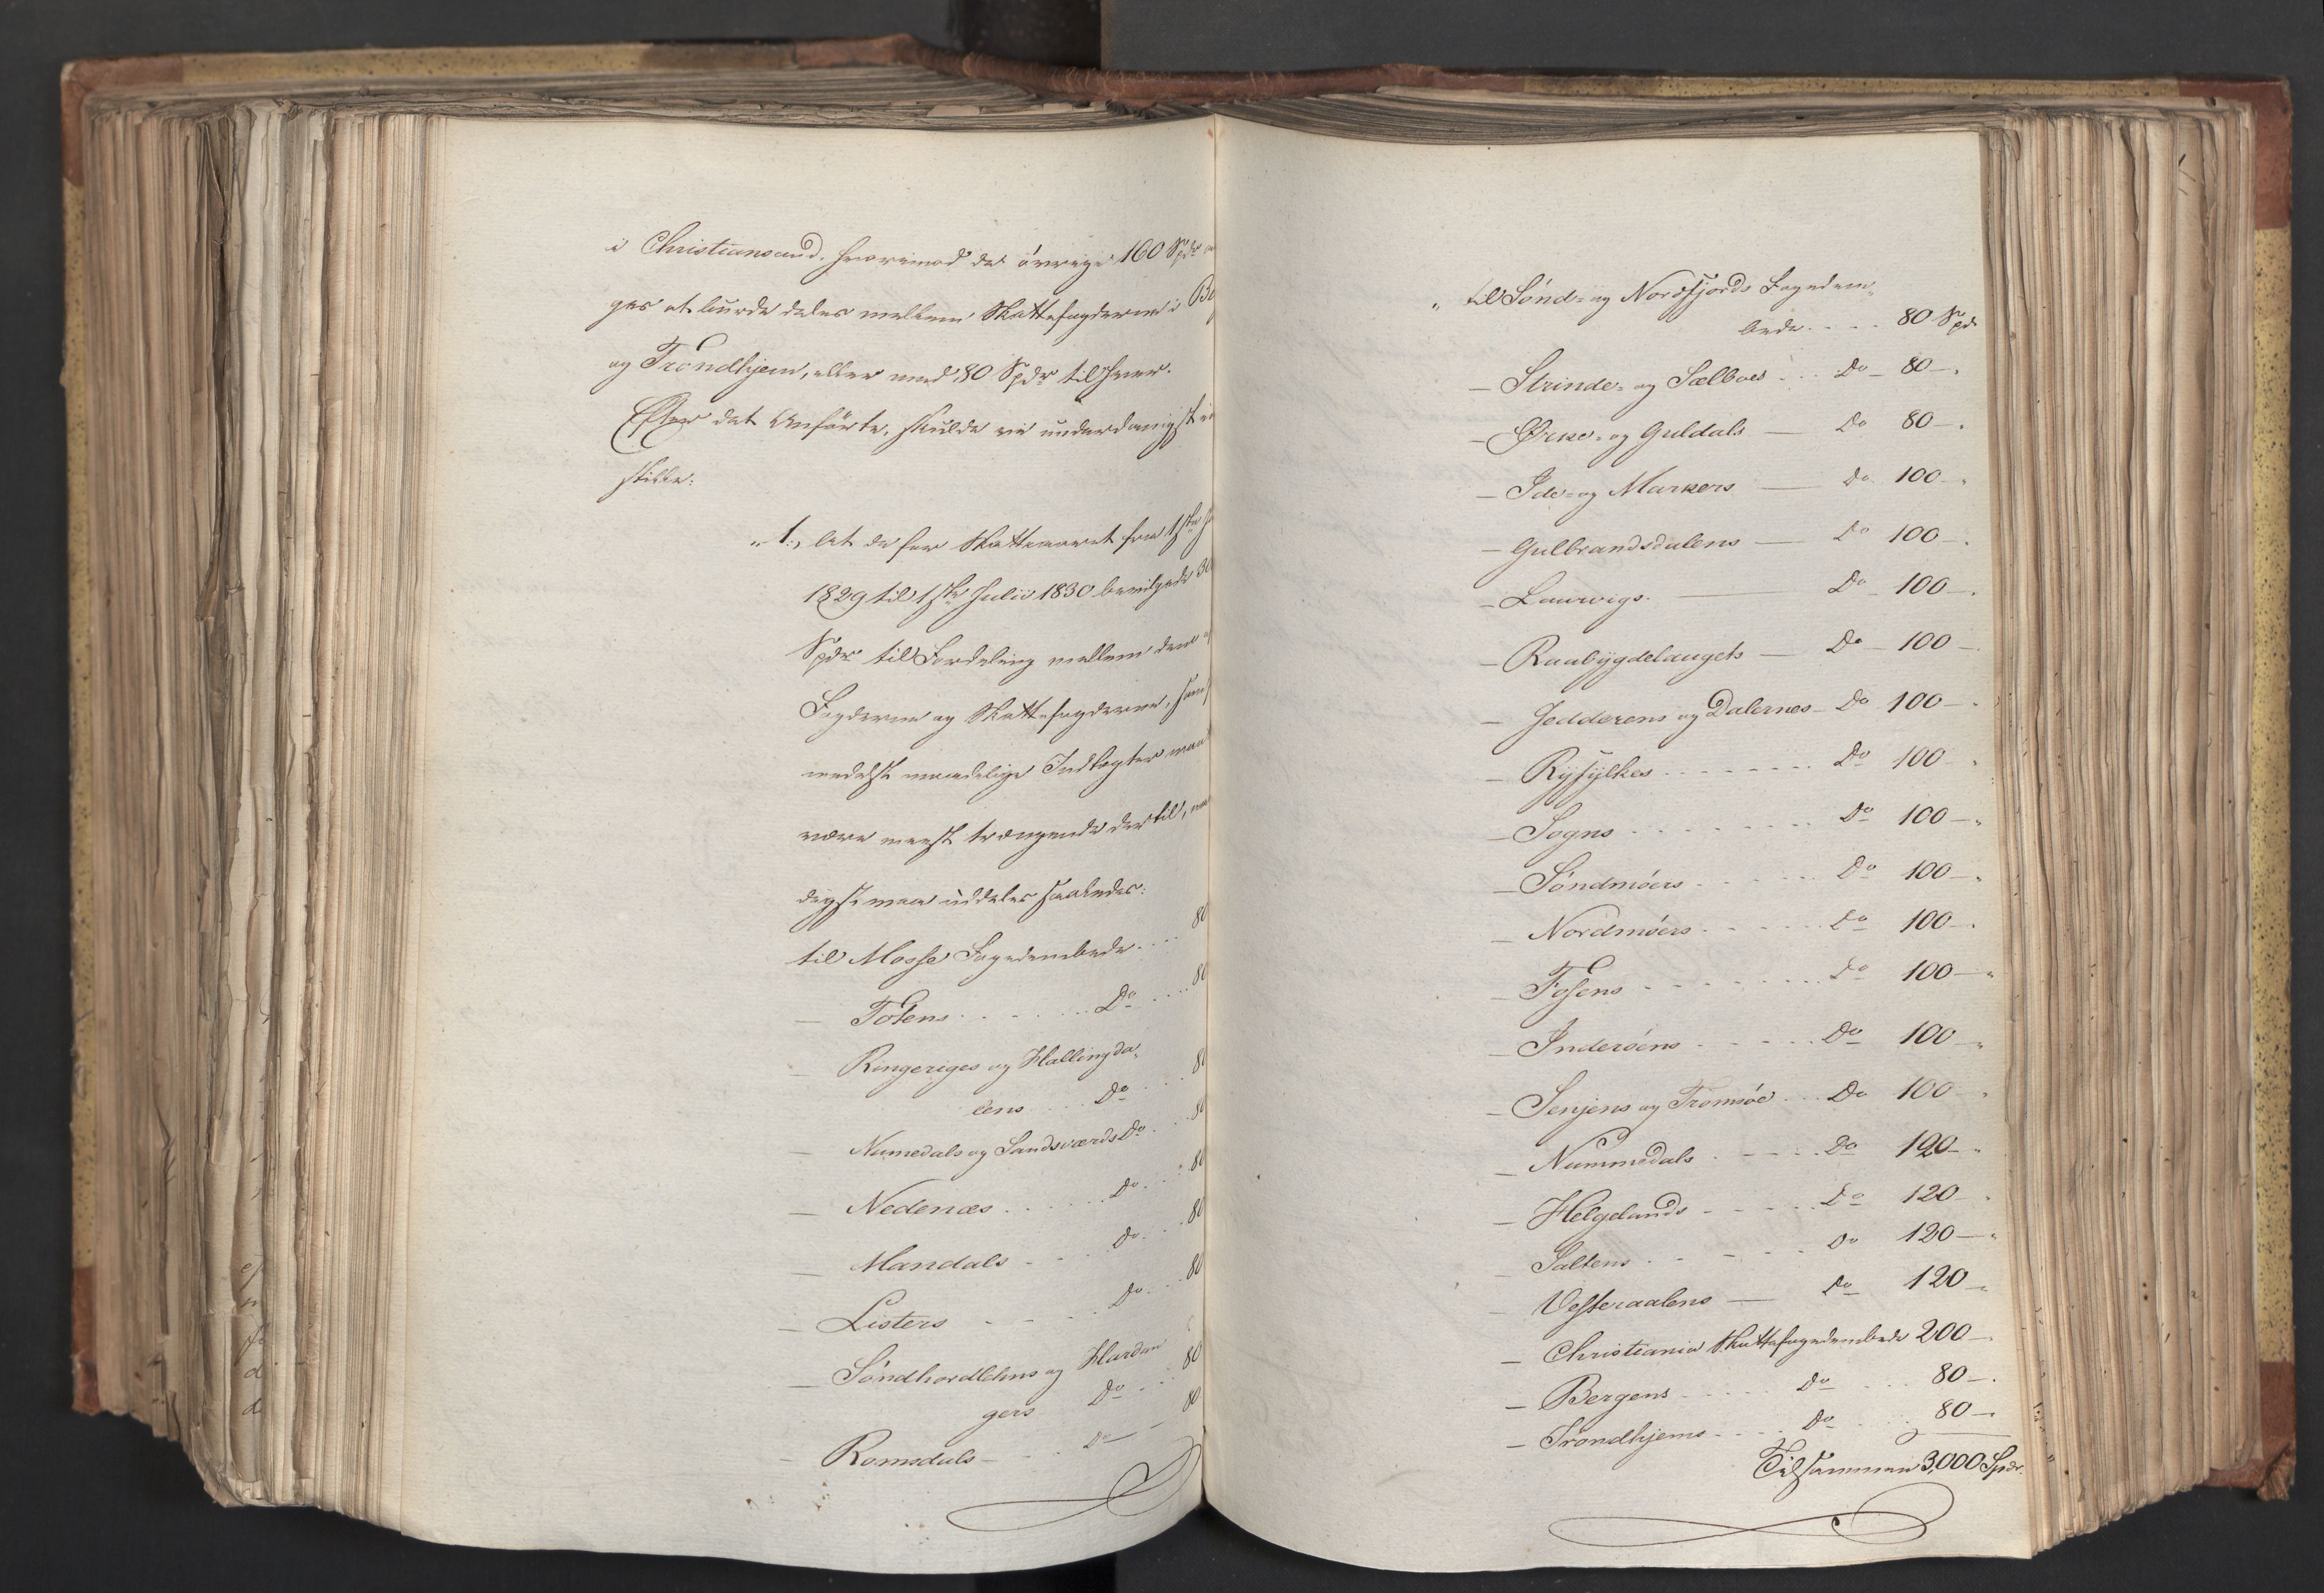 i Christiansand. hvorimod de övrige 160 Spdr
ges at burde deles mellem Skattefogderne i
og Trondhjem, eller med 80 Spdr til hver.
Efter det Anförte, skulde vi underdanigst
stille:
„1., At de for Skatteaaret fra 1ste
1829 til 1ste Julii 1830 bevilgede
Spdr til Fordeling mellem de
Fogderne og Skattefogderne, som
medelst maadelige Indtægter
være meest trængende dertil,
digst maa uddeles saaledes:
til Mosse Fogedembede .... 80
— Totens ...... Do .... 80
— Ringeriges og Hallingda-
lens ... Do .... 80
— Numedals og Sandsværds Do ... 80
— Nedenæs ..... Do .... 80
— Mandals - - . Do ... 80
— Listers - - - . Do ... 80
— Söndhordlehns og Hardan
gers Do .... 80
— Romsdals — . Do — 80
„ til Sönd- og Nordfjords Fogedem-
bede .... 80 Spd
— Strinde- og Sælboes ... Do — 80 —
— Ørke- og Guldals — Do 80 —
— Ide- og Markers — Do 100 —
— Gulbrandsdalens — Do 100 —
— Laurvigs. Do — 100 —
— Raabygdelaugets — Do — 100 —
— Jedderens og Dalernes — Do 100 —
— Ryfylkes ........ Do 100 —
— Sogns ........ Do 100 —
— Söndmöers ...... Do 100 —
— Nordmöers ...... Do 100 —
— Fosens ........ Do 100 —
— Inderöens ..... Do 100 —
— Senjens og Tromsöe ... Do 100 —
— Nummedals ..... Do 120 —
— Helgelands ..... Do 120 —
— Saltens ...... Do 120 —
— Vesteraalens — Do 120 —
— Christiania Skattefogedembede 200 —
— Bergens ..... Do ... 80 —
— Trondhjems .... Do ... 80 —
Tilsammen 3,000 Spdr.